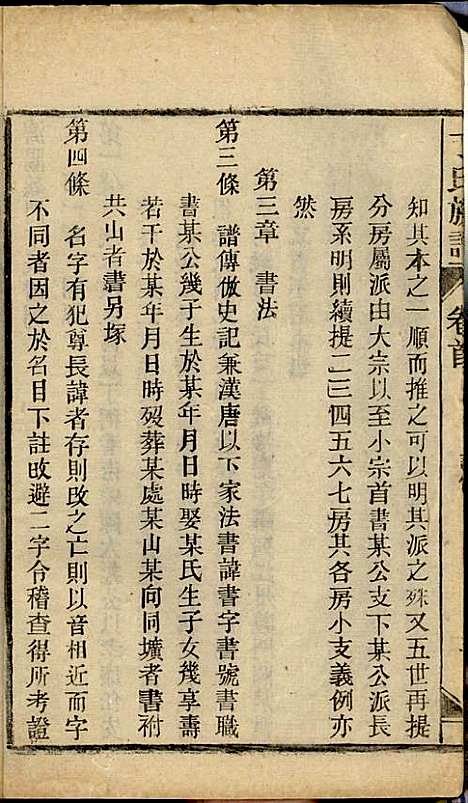 氏族譜 卷首
知其本之一順而推之可以明其派之殊又五世再提
分房屬派由大宗以至小宗首書某公支下某公派長
房系明則續提二三四五六七房其各房小支義例亦
然
第三章 書法
第三條 譜傳倣史記兼漢唐以下家法書諱書字書號書職
書某公幾子生於某年月日時娶某氏生子女幾享壽
若干於某年月日時歿葬某處某山某向同壙者書祔
共山者書另塚
第四條 名字有犯尊長諱者存則改之亡則以音相近而字
不同者因之於名目下註改避二字令稽查得所考證